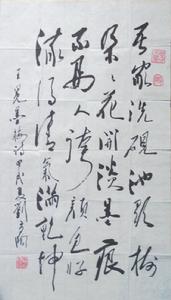 吾家洗硯池頭樹
朵朵花開淡墨痕
不要人誇顏色好
流得清氣滿乾坤
王冕墨梅詩甲戌夏劉